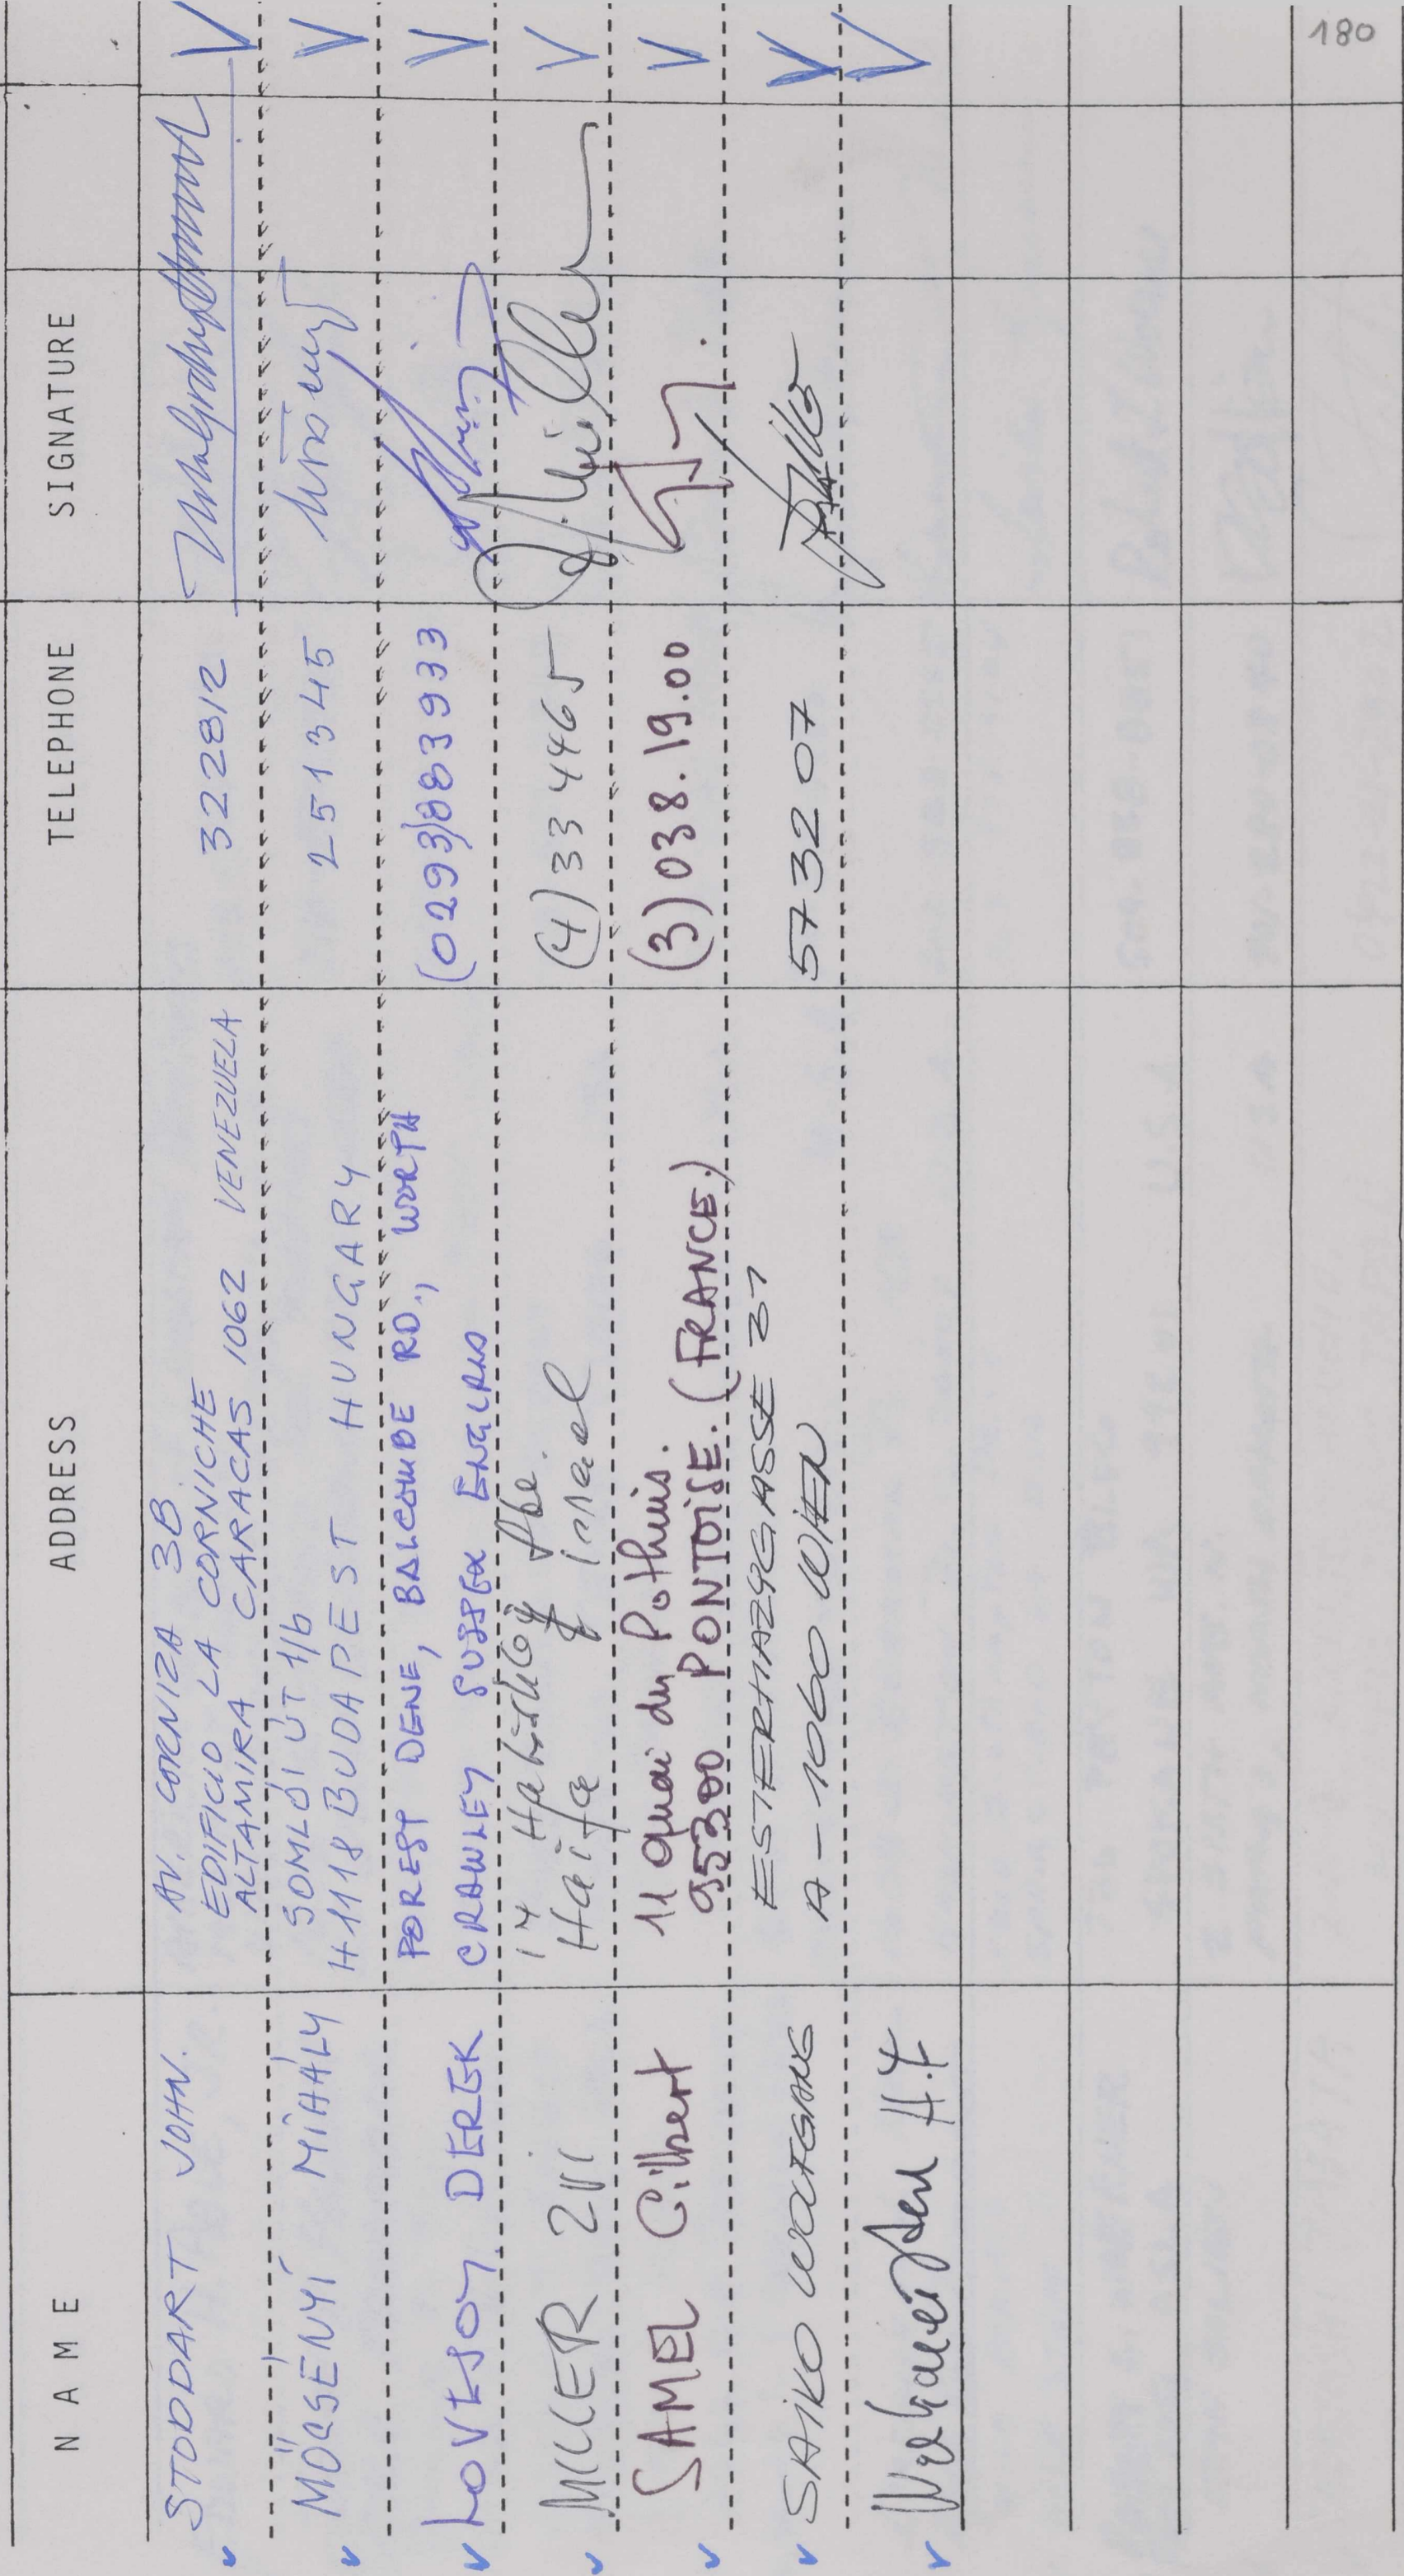 NAME ADDRESS TELEPHONE SIGNATURE
STODDART JOHN.
AV. CORNIZA 3B
EDIFICIO LA CORNICHE
ALTAMIRA CARACAS 1062 VENEZUELA
322812
MÖCSÉNYI MIHÁLY
SOMLÓI ÚT 1/b
H-1118 BUDAPEST HUNGARY
251345
LOVEJOY DEREK
FOREST DENE, BALCOMBE RD., WORTH
CRAWLEY SUSSEX ENGLAND
(0293)883933
MILLER ZVI
14
Haifa israel
(4) 33 4465
SAMEL Gilbert
11 quai du Pothuis.
95300 PONTOISE. (FRANCE.)
(3) 038.19.00
SAIKO WOLFGANG
ESTERHAZYGASSE 31
A-1060 WIEN
573207
180